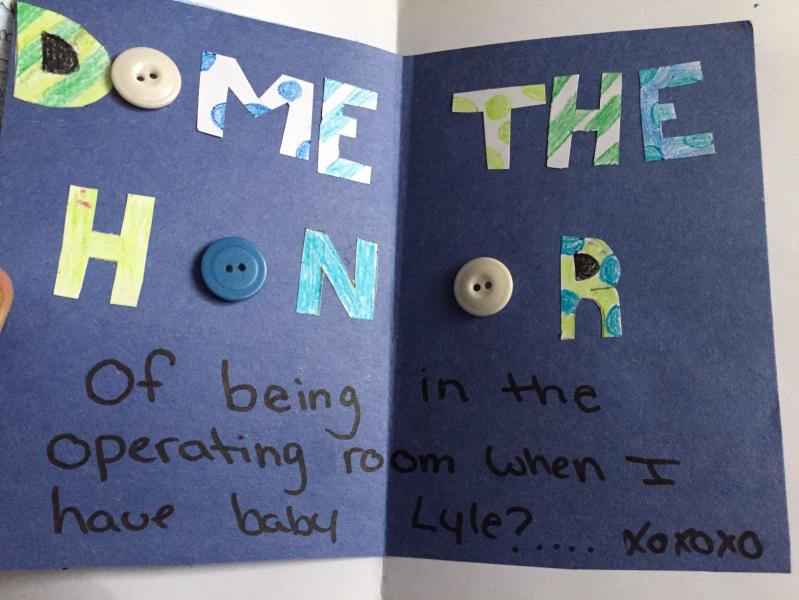 DOME THE
HONOR
Of being in the
operating room when I
have baby Lyle?.... xoxoxo